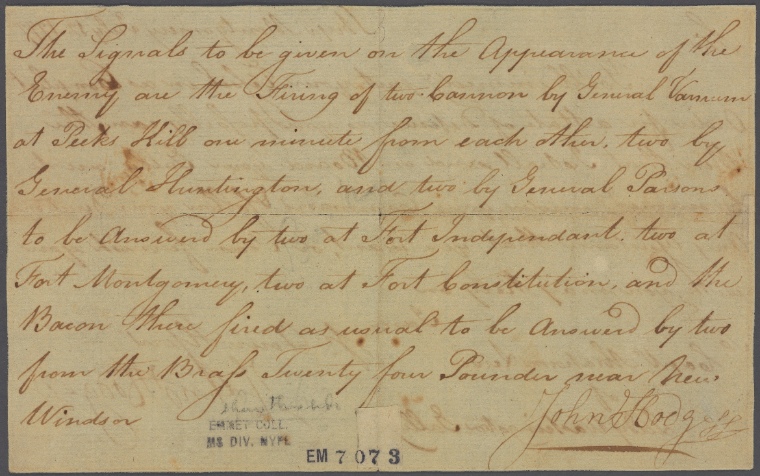 The Signals to be given on the Appearance of the
Enemy are the Firing of two Cannon by General Varnum
at Peeks Kill one minute from each other, two by
General Huntington, and two by General Parsons
to be Answerd by two at Fort Independant, two at
Fort Montgomery, two at Fort Constitution, and the
Bacon there fired as usual to be Answerd by two
from the Brass Twenty four Pounder near New
Windsor
John Hodg
EMMET COLL.
MS DIV. NYPL
EM 7073